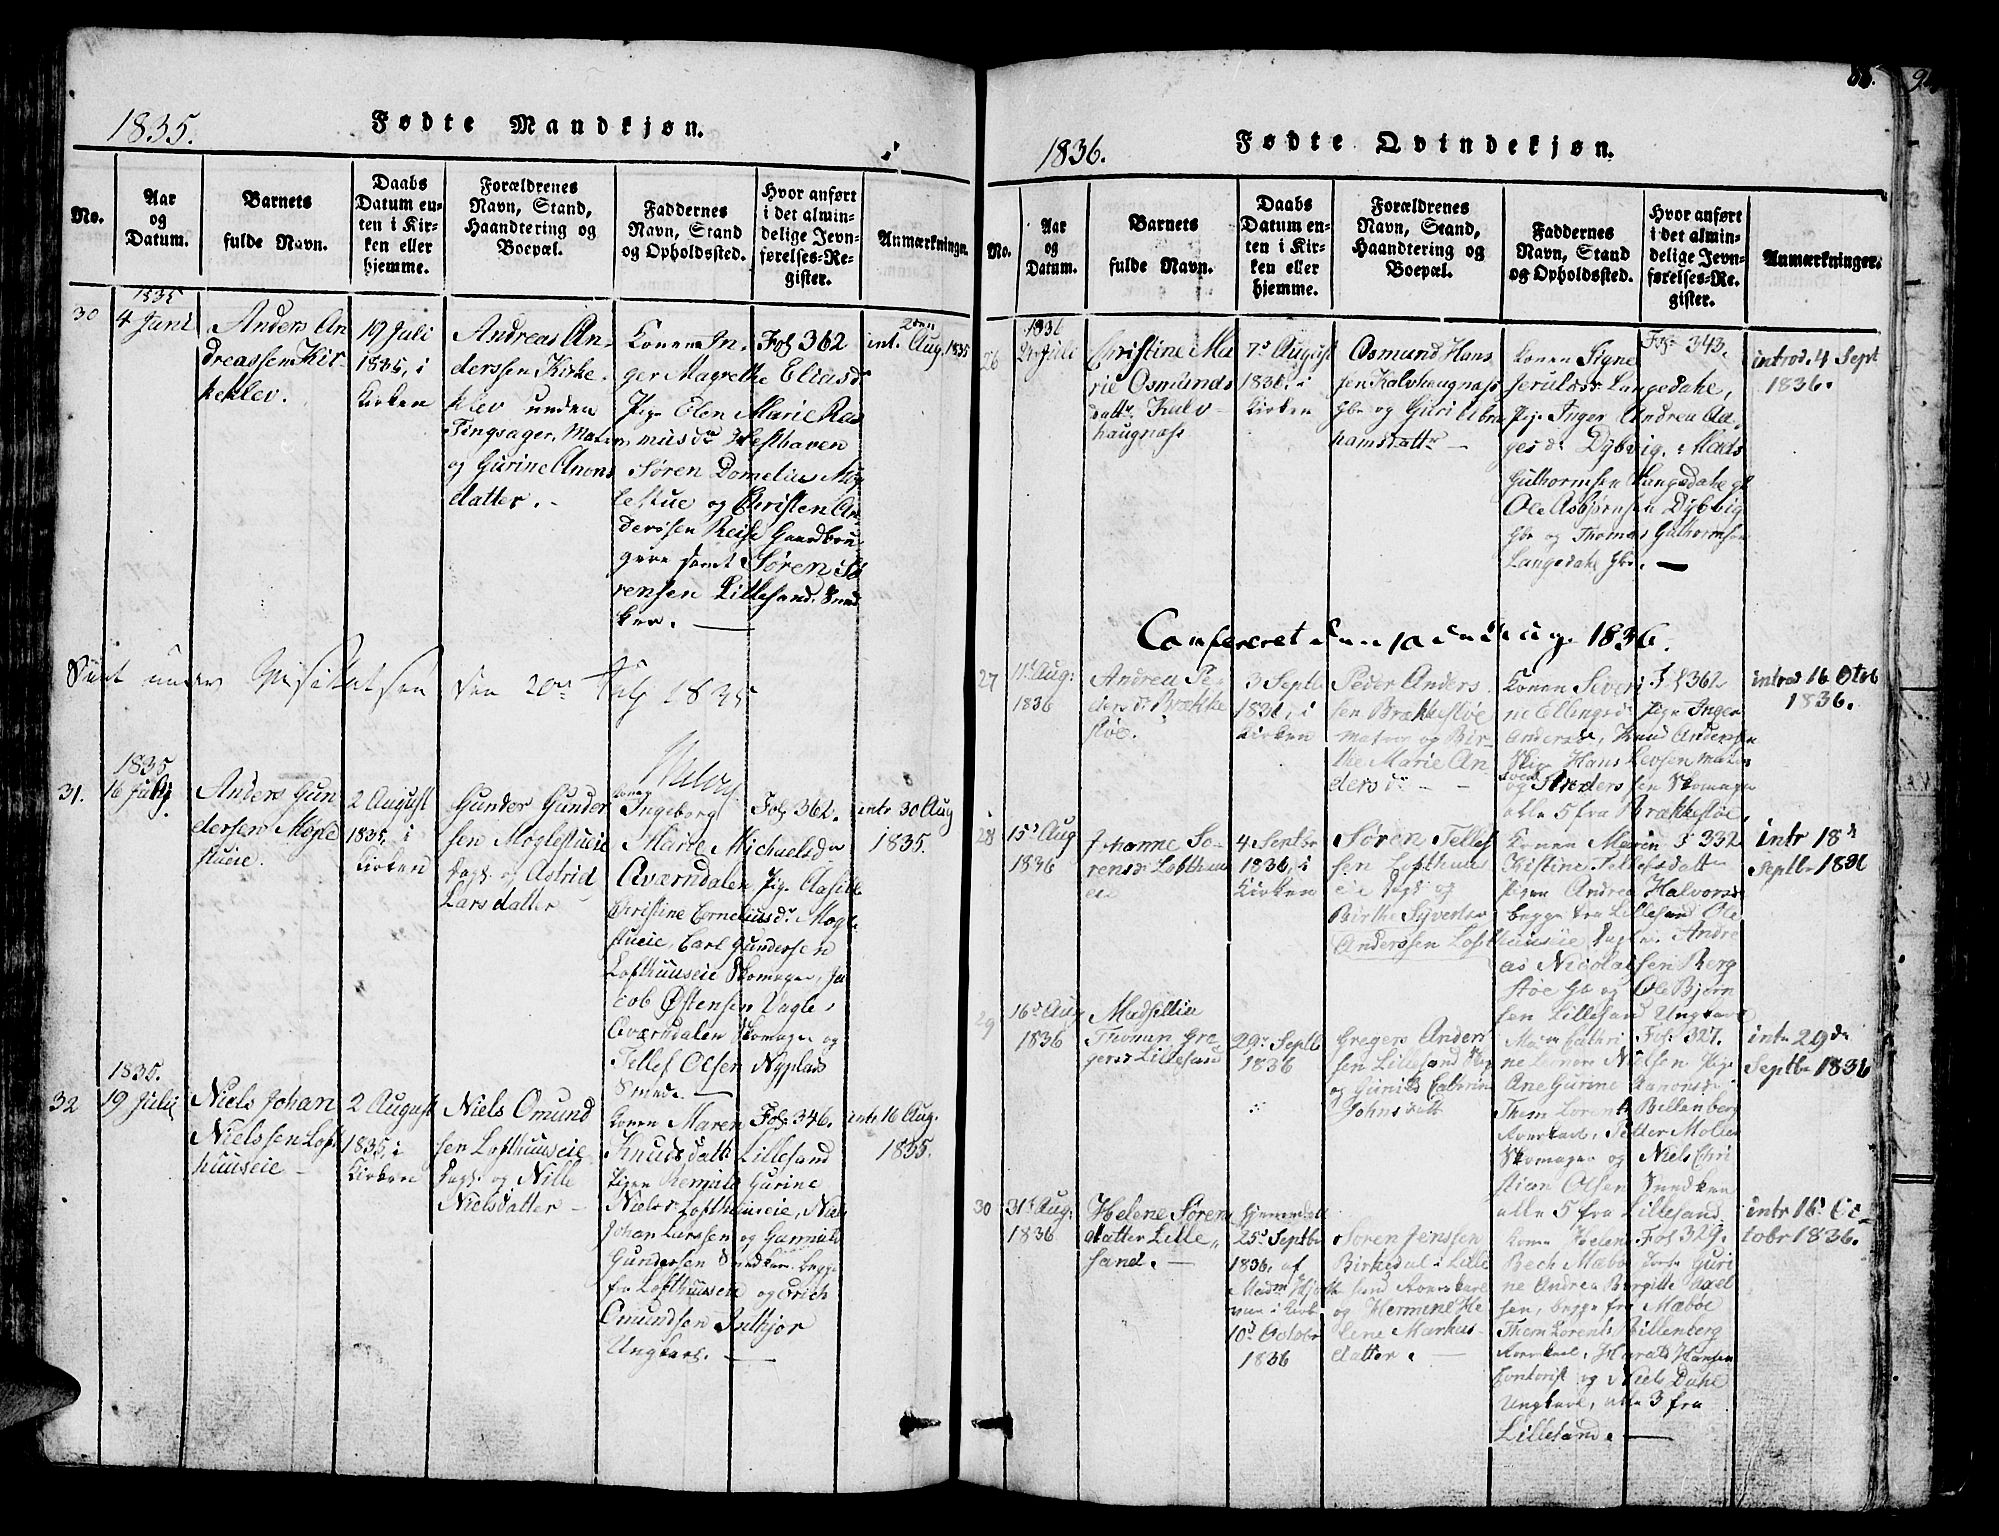 1835.
Fødte Mandkjøn.
No.
Aar
og
Datum.
Barnets
fulde Navn.
Daabs
Datum en-
ten i Kir-
ken eller
hjemme.
Forældrenes
Navn, Stand,
Haandtering og
Boepæl.
Faddernes
Navn, Stand
og Opholdssted.
Hvor anført
i det almin-
delige Jevn-
førelses-Re-
gister.
Anmærkninger.
30
1835
4 Juni
Anders An
dreassen Kir
keklev.
19 Juli
1835, i
Kirken
Andreas An-
derssen Kirke-
klev under
Tingsager, Matros
og Gurine Anons
datter.
Konen In-
ger Magrethe Eliasdr
Pige Elen Marie Ras
musdr Westhaven
Søren Domelius Mog
lestue og Christen An-
derssen Reise Gaardbru-
gere samt Søren Sø
rensen Lillesand. Sned
ker.
Fol 362
int. 2den Aug. 1835
Seet under Visitatsen den 20de July 1835
31.
1835
16 July
Anders Gun
dersen Mogle
stueie.
2 August
1835, i
Kirken
Gunder Gunder
sen Moglestueie
Dags. og Astrid
Lars datter
Konen
Ingeborg
Marie Michaelsdr
Aværndalen, Pig. Aasille
Christine Corneliusdr Mogle
stueie, Carl Gundersen
Lofthuuseie Skomager, Ja
cob Østensen Vagle,
Aværndalen Skomager og
Tellef Olsen Nyplads
Smed.
Fol 362.
intr 30 Aug
1835.
32
1835.
19 Julii
Niels Johan
Nielssen Loft
huuseie
2 August
1835, i
Kirken
Niels Omund
sen Lofthuuseie
Dags. og Nille
Nielsdatter
Konen Maren
Knudsdatt Lillesand
Pigen Gurine
Nielsdr Lofthuuseie, Niels
Johan Larssen og Gunnuld
Gundersen Snedker. begge
fra Lofthuuseie og Erich
Omundsen Indthjor
Ungkarl.
Fol 346.
intr 16 Aug.
1835.
1836.
Fødte Qvindekjøn.
No.
Aar
og
Datum.
Barnets
fulde Navn.
Daabs
Datum en-
ten i Kir-
ken eller
hjemme.
Forældrenes
Navn, Stand,
Haandtering og
Boepæl.
Faddernes
Navn, Stand
og Opholdssted.
Hvor anført
i det almin-
delige Jevn-
førelses-Re-
gister.
Anmærkninger.
26
1836
Juli
Christine Ma
rie Osmunds
dattr. Kalv-
haugnæss
7d August
1836, i
Kirken
Osmund Hans
sen Kalvhaugnæss
Gbr og Guri Abra
hamsdattr
Konen Signe
Langedahe,
Pige Inger Andrea Aa-
gesdr Dybvig, Mads
Guthormsen Langedahe gb
Ole Asbjørnsen Dybvig
Gbr og Thomas Guthormsen
Langedahe Gbr.
Fol 343.
introd. 4 Sept
1836.
Confereret den 10de Aug. 1836.
27
11d Aug:
1836
Andrea Pe-
dersdr Brække
støe.
3 Septb
1836, i
Kirken
Peder Anders
sen Brækkestøe
Matros og Bir-
the Marie An
dersdr
Konen Severi
ne Ellingsdr
Pige Inger
Andersdr, Knud Andersen
Hans Levsen Matros
Skomager
alle 5 fra Brækkestøe.
F. 362
introd 16 Octob
1836.
28
15d Aug
1836
Johanne Sø-
rensdr Lofthuus
eie
4 Septbr
1836, i
Kirken
Søren Tellef
sen Lofthuus
eie Dags og
Birthe Syvertsdr
Konen Maren
Christine Tellefsdattr
Pigen Andrea Halvorsdr
begge fra Lillesand, Ole
Anderssen Lofthuuseie, Andre
as Nicolaisen Berg
støe Gb og Ole Bjørn
sen Lillesand Ungkarl
F 332
intr 18d
Septbr 1836
29
16d Aug
1836
Thomine Gre
gersdr Lillesand
29d Septb
1836
Gregers Anders
sen Lillesand
og Gunild Cathrine
Johnsdatt
Madm Cathri
ne Lenore Nielsen Pige
Ane Gurine Aanonsdr
Them Lorents Billenberg
Petter Møller
Skomager og Niels Chri
stian Olsen Snedker
alle 5 fra Lillesand
Fol 327.
intr 29de
Septbr 1836
30
31d Aug:
1836
Helene Sørens
datter Lille
sand.
hjemmedøbt
25d Septbr
1836, af
10d Octobr
1836
Søren Jenssen
Birkedal i Lille
sand
og Hermine He
lene Markus
datter.
Konen Helene
Bech Mæbø Guri
ne Andrea Birgitte Axel
sen, begge fra Mæbøe
Them Lorents Billenberg
Harald Hansen
Contorist og Niels Dahe
Ungkarl, alle 3 fra
Lillesand.
Fol 329.
intr 16d Oc-
tobr 1836.